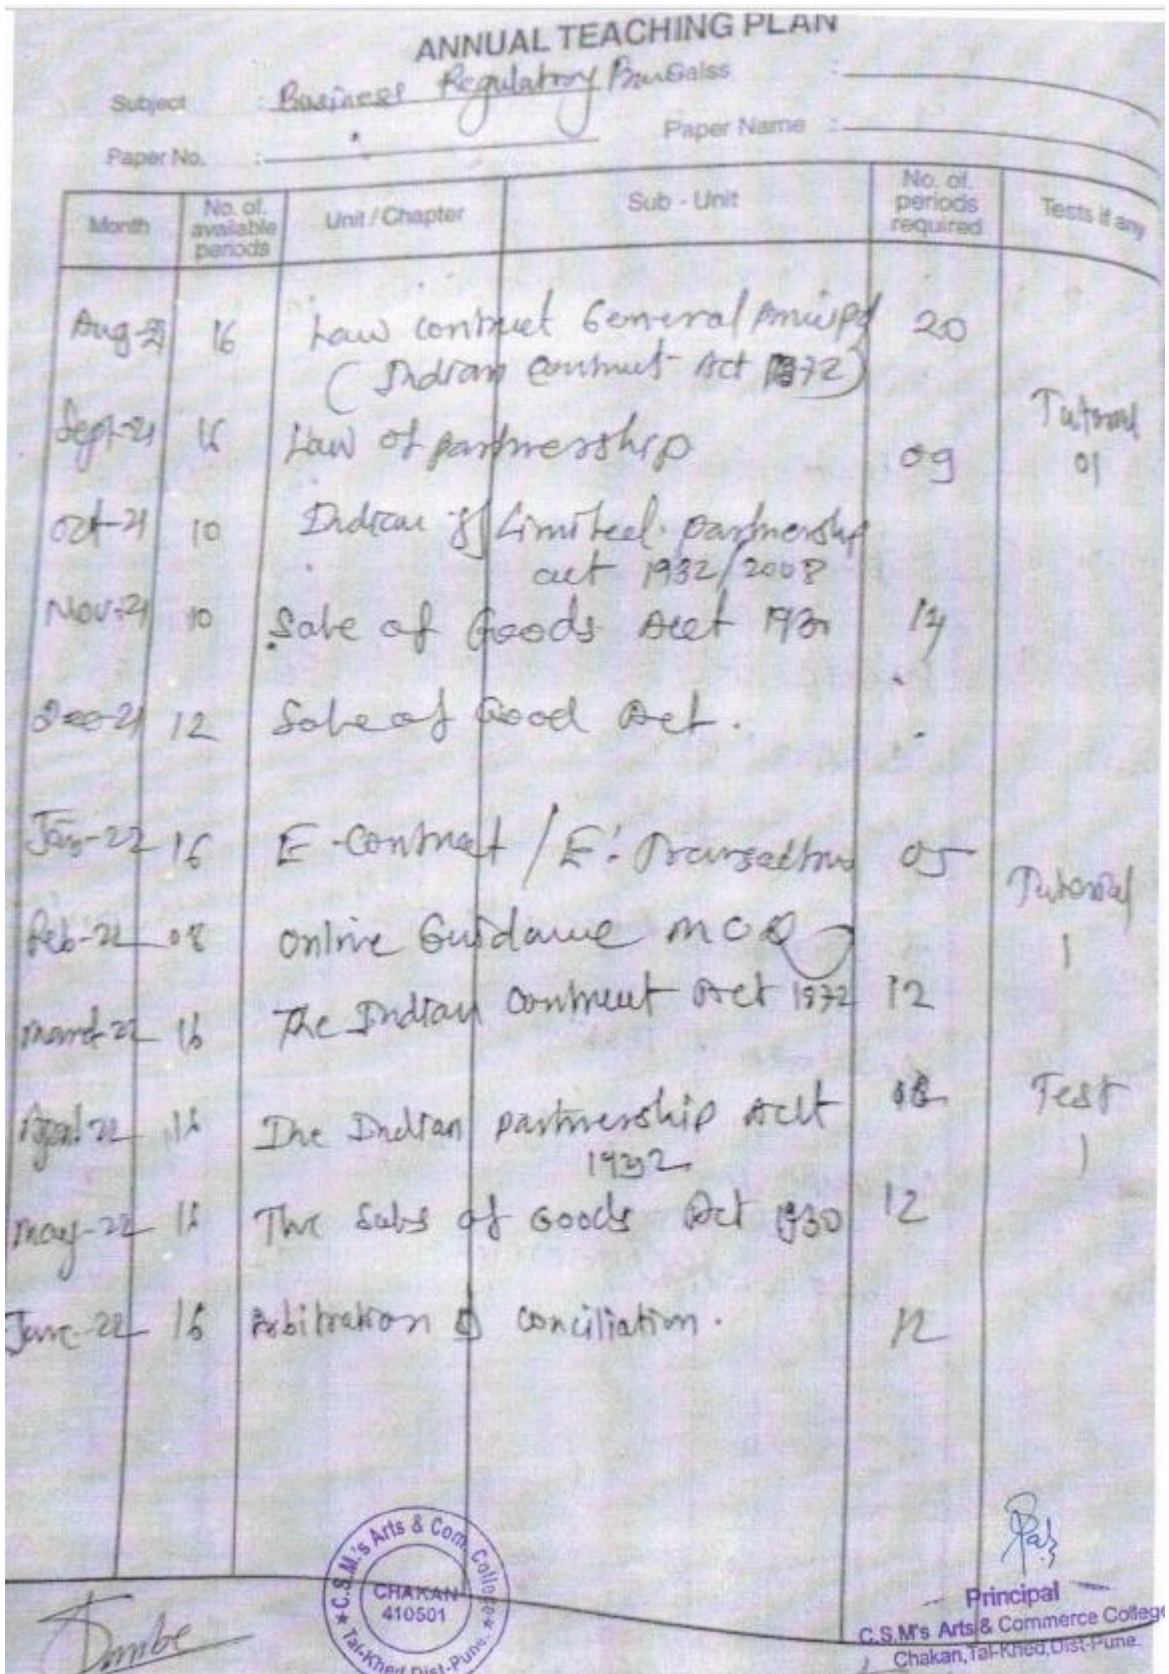 ANNUAL TEACHING PLAN
Subject : Business Regulatory Galss :
Paper No. : Paper Name :
Month No. of available periods Unit / Chapter Sub - Unit No. of periods required Tests if any
Aug-21 16 Law contract General 20
(Indian Contract Act 1872)
Sept-21 16 Law of partnership 09 Tutorial 01
Oct-21 10 Indian Limited partnership
act 1932/2008
Nov-21 10 Sale of Goods Act 1930 14
Dec-21 12 Sale of Good Act.
Jan-22 16 E-Contract / E. Transactions 05
Feb-22 08 Online Guidance MCQ Tutorial 1
March-22 16 The Indian Contract Act 1872 12
April-22 16 The Indian partnership Act Test 1
1932
May-22 16 The Sales of Goods Act 1930 12
June-22 16 Arbitration & conciliation. 12
C.S.M.'s Arts & Com. College
CHAKAN
410501
Tal-Khed, Dist-Pune.
Principal
C.S.M's Arts & Commerce College
Chakan, Tal-Khed, Dist-Pune.